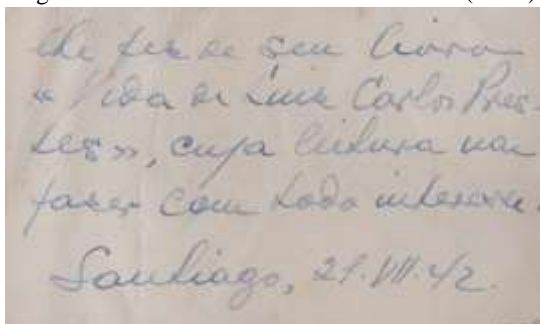 lhe fez de seu livro
« Vida de Luis Carlos Pres-
tes », cuja leitura vai
fazer com todo interesse.
Santiago, 21.VII.42.